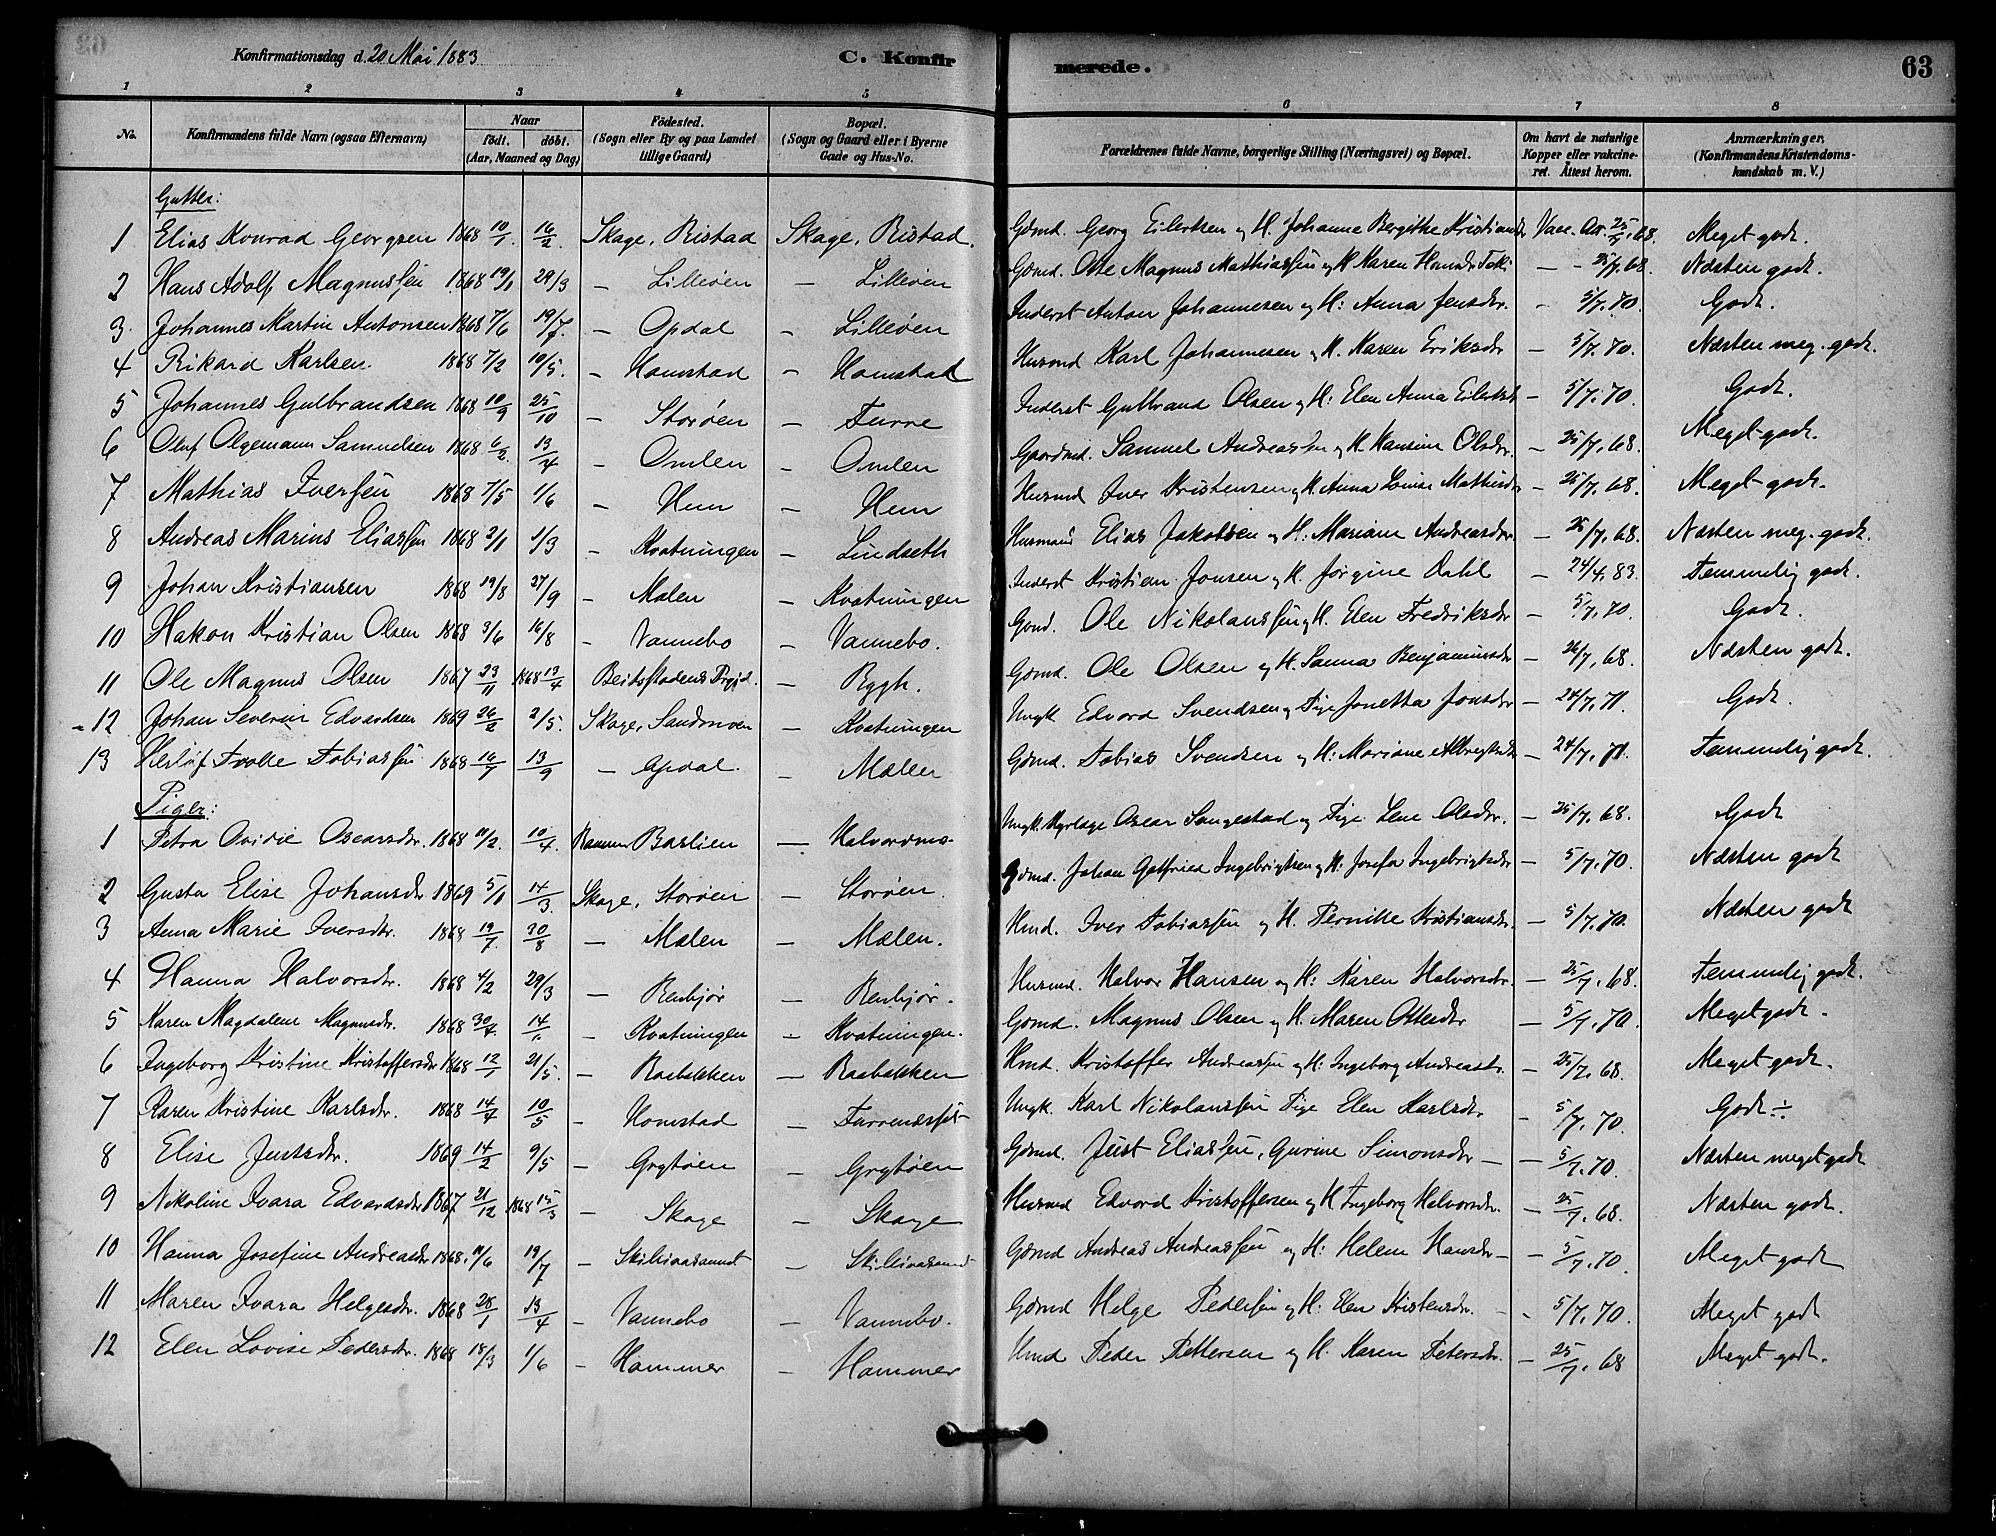 Konfirmationsdag d. 20 Mai 1883
C. Konfirmerede.
63
1 2 3 4 5 6 7 8
No. Konfirmandens fulde Navn (ogsaa Efternavn) Naar födt. döbt. (Aar, Maaned og Dag) Födested. (Sogn eller By og paa Landet tillige Gaard) Bopæl. (Sogn og Gaard eller i Byerne Gade og Hus-No. Forældrenes fulde Navne, borgerlige Stilling (Næringsvei) og Bopæl. Om havt de naturlige Kopper eller vakcineret. Attest herom. Anmærkninger. (Konfirmandens Kristendomskundskab m. V.)
Gutter:
1 Elias Konrad Georgsen 1868 10/1. 16/2. Skage, Ristad Skage, Ristad. Gdmd. Georg Eilertsen og H. Johanne Bergithe Kristiansdr Vacc. 25/7. 68. Meget godt.
2 Hans Adolf Magnussen 1868 19/1 29/3 – Lilleöen – Lilleöen Gdmd. Magnus Mathiassen og H. Karen – 25/7. 68. Næsten godt.
3. Johannes Martin Antonsen 1868 7/6 19/7. – Opdal – Lilleöen Inderst Anton Johannesen og H: Anna Jensdtr – 5/7. 70. Godt.
4 Rikard Karlsen 1868 7/2 10/5. – Homstad – Homstad Husmd Karl Johannesen og H. Karen Eriksdtr – 5/7. 70. Næsten meg. godt.
5 Johannes Gulbrandsen 1868 10/9 25/10 – Storöen – Furre Inderst Gulbrand Olsen og H: Elen Anna Eilertsdr – 5/7. 70. Godt.
6 Oluf Olgemann Samuelsen 1868 6/2. 13/4 – Omlen – Omlen Gaardmd. Samuel Andreassen og H. Hansine Olsdtr. – 25/7, 68. Meget godt.
7 Mathias Iversen 1868 7/5 1/6 – Hem – Hem Husmd Iver Kristensen og H. Anna Lovise – 25/7. 68. Meget godt.
8 Andreas Marius Eliassen 1868 2/1 1/3 – Kvatningen – Lindseth Husmand Elias Jakobsen og H: Mariane Andreasdtr. – 25/7. 68. Næsten meg. godt.
9 Johan Kristiansen 1868 19/8 27/9 – Mælen – Kvatningen Inderst Kristian Jonsen og H. Jörgine Dahl – 24/4. 83. Temmelig godt.
10 Hakon Kristian Olsen 1868 3/6 16/8 – Vannebo – Vannebo. Gmd. Ole Nikolaussen og H. Elen Fredriksdtr – 5/7. 70. Godt.
11 Ole Magnus Olsen 1867 23/11 1868 13/4 Beitstadens – Bygh. Gdmd. Ole Olsen og H. Sanna Benjaminsdtr – 26/7. 68. Næsten godt.
12 Johan Severin Edvardsen 1869 26/2 2/5. Skage, Sandmoen – Kvatningen Ungk Edvard Svendsen og Pige Jonetta Jonsdtr – 24/7. 71. Godt.
13 Tvolle Tobiassen 1868 16/7 13/9 – Opdal. – Mælen Gdmd. Tobias Svendsen og H: Mariane Albregtsdtr – 24/7. 71. Temmelig godt.
Piger:
1 Petra Ovidie Oscarsdtr. 1868 11/2. 10/4. Ranum Barlien – Halvardmo Ungk. Oscar Sangestad og Pige Lene Olsdtr. – 25/7. 68. Godt
2 Gusta Elise Johansdtr 1869 5/1 14/3. Skage, Storöen – Storöen. Gdmd. Johan Gotfried Ingebrigtsen og H. Josefa Ingebrigtsdtr – 5/7. 70. Næsten godt
3 Anna Marie Iversdtr. 1868 19/7. 30/8 – Mælen – Mælen. Hmd. Iver Tobiassen og H. Pernille Kristiansdtr. – 5/7. 70. Næsten godt
4 Hanna Halvorsdtr. 1868 4/2 29/3 – Renbjör – Renbjör. Husmd. Halvor Hansen og H: Karen Halvorsdtr. – 25/7. 68. Temmelig godt.
5 Karen Magdalene Magnusdtr. 1868 14/ – Kvatningen – Kvatningen. Gdmd. Magnus Olsen og H. Maren Ottesdtr – 5/7. 70. Meget godt.
6 Ingeborg Kristine Kristoffersdtr 1868 12/1 21/5. – Raabakken – Raabakken Hmd. Kristoffer Andreassen og H: Ingeborg Andreasdtr. – 25/7. 68. Meget godt.
7 Karen Kristine Karlsdtr. 1868 14/ 10/5 – Homstad – Ungk. Karl Nikolaussen Pige Elen Karlsdtr – 5/7. 70. Godt ÷
8 Elise Justsdtr. 1869 14/2 9/5 – Grytöen – Grytöen Gdmd. Just Eliassen, Gurine Simonsdtr – – 5/7. 70. Næsten meget godt
9 Nikoline Ivara Edvardsdtr 1867 21/12 1868 15/3 – Skage – Skage Husmd Edvard Kristoffersen og H Ingeborg Halvorsdtr. – 25/7. 68. Næsten godt.
10 Hanna Josefine Andreasdtr 1868. 11/6 19/7 – – Gdmd Andreas Andreassen og H: Helene Hansdtr – – 5/7. 70. Meget godt
11 Maren Ivara Helgesdtr. 1868 28/1 13/4 – Vannebo – Vannebo. Gdmd Helge Pedersen og H: Elen Kristensdtr. – 5/7. 70. Meget godt
12 Elen Lovise Pedersdtr. 1868 18/3 1/6 – Hammer – Hammer Hmd Peder Pettersen og H. Karen Petersdtr. – 25/7. 68 Meget godt.